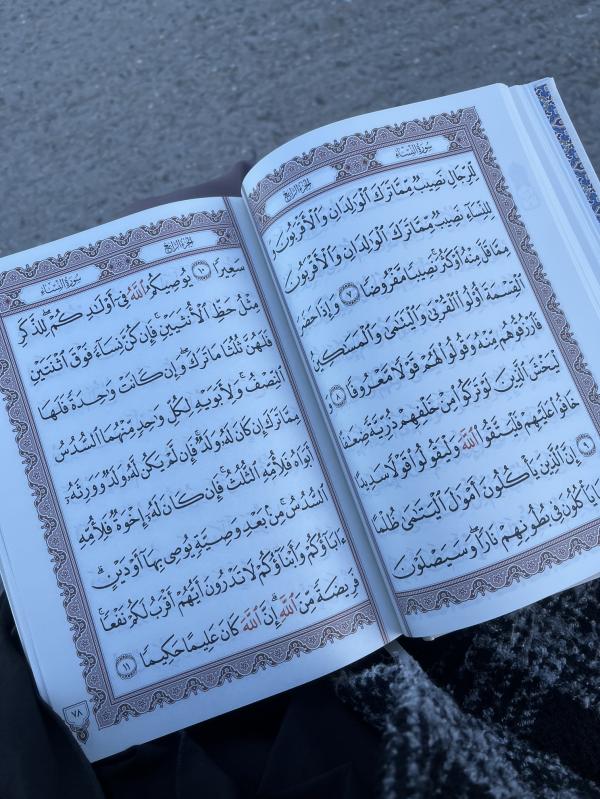 سُورَةُ النِّسَاءِ
الجُزْءُ الرَّابِعُ
لِّلرِّجَالِ نَصِيبٌ مِّمَّا تَرَكَ الْوَٰلِدَانِ وَالْأَقْرَبُونَ وَ
لِلنِّسَاءِ نَصِيبٌ مِّمَّا تَرَكَ الْوَٰلِدَانِ وَالْأَقْرَبُونَ
مِمَّا قَلَّ مِنْهُ أَوْ كَثُرَ نَصِيبًا مَّفْرُوضًا ٧ وَإِذَا حَضَرَ
الْقِسْمَةَ أُو۟لُوا الْقُرْبَىٰ وَالْيَتَٰمَىٰ وَالْمَسَٰكِينُ
فَارْزُقُوهُم مِّنْهُ وَقُولُوا لَهُمْ قَوْلًا مَّعْرُوفًا ٨ وَ
لْيَخْشَ الَّذِينَ لَوْ تَرَكُوا مِنْ خَلْفِهِمْ ذُرِّيَّةً ضِعَٰفًا
خَافُوا عَلَيْهِمْ فَلْيَتَّقُوا اللَّهَ وَلْيَقُولُوا قَوْلًا سَدِيدًا
٩ إِنَّ الَّذِينَ يَأْكُلُونَ أَمْوَٰلَ الْيَتَٰمَىٰ ظُلْمًا
إِنَّمَا يَأْكُلُونَ فِي بُطُونِهِمْ نَارًا وَسَيَصْلَوْنَ
الجُزْءُ الرَّابِعُ
سُورَةُ النِّسَاءِ
سَعِيرًا ١٠ يُوصِيكُمُ اللَّهُ فِي أَوْلَٰدِكُمْ لِلذَّكَرِ
مِثْلُ حَظِّ الْأُنثَيَيْنِ فَإِن كُنَّ نِسَاءً فَوْقَ اثْنَتَيْنِ
فَلَهُنَّ ثُلُثَا مَا تَرَكَ وَإِن كَانَتْ وَٰحِدَةً فَلَهَا
النِّصْفُ وَلِأَبَوَيْهِ لِكُلِّ وَٰحِدٍ مِّنْهُمَا السُّدُسُ
مِمَّا تَرَكَ إِن كَانَ لَهُ وَلَدٌ فَإِن لَّمْ يَكُن لَّهُ وَلَدٌ وَوَرِثَهُ
أَبَوَاهُ فَلِأُمِّهِ الثُّلُثُ فَإِن كَانَ لَهُ إِخْوَةٌ فَلِأُمِّهِ
السُّدُسُ مِن بَعْدِ وَصِيَّةٍ يُوصِي بِهَا أَوْ دَيْنٍ
ءَابَاؤُكُمْ وَأَبْنَاؤُكُمْ لَا تَدْرُونَ أَيُّهُمْ أَقْرَبُ لَكُمْ نَفْعًا
فَرِيضَةً مِّنَ اللَّهِ إِنَّ اللَّهَ كَانَ عَلِيمًا حَكِيمًا ١١
٧٨